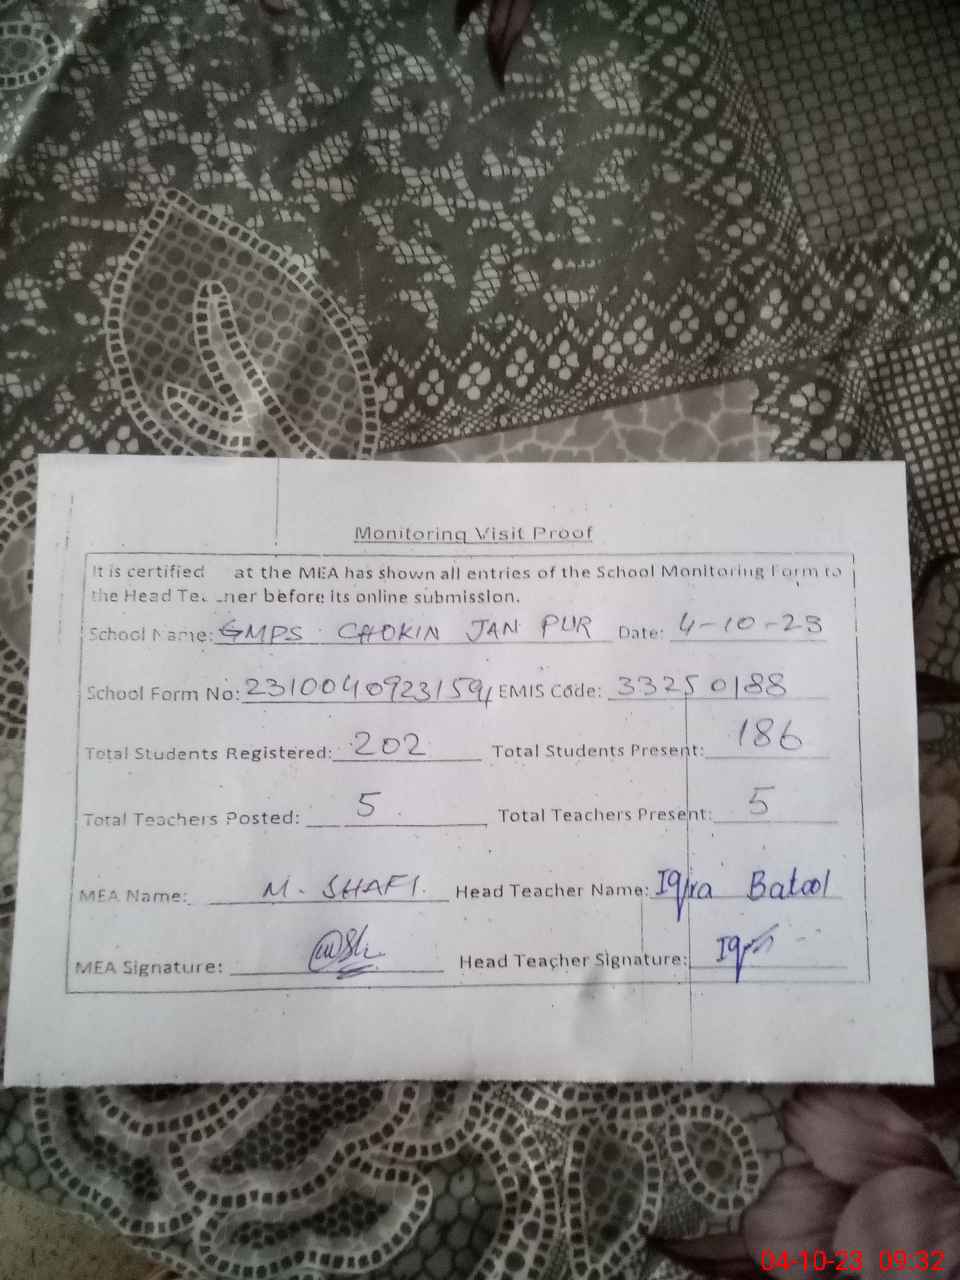 Monitoring Visit Proof
It is certified at the MEA has shown all entries of the School Monitoring Form to
the Head before its online submission.
School Name: GMPS CHOKIN JAN PUR Date: 4-10-23
School Form No: 2310040923159 EMIS Code: 33250188
Total Students Registered: 202 Total Students Present: 186
Total Teachers Posted: 5 Total Teachers Present: 5
MEA Name: M. SHAFI. Head Teacher Name: Iqra Batool
MEA Signature: Head Teacher Signature:
04-10-23 09:32